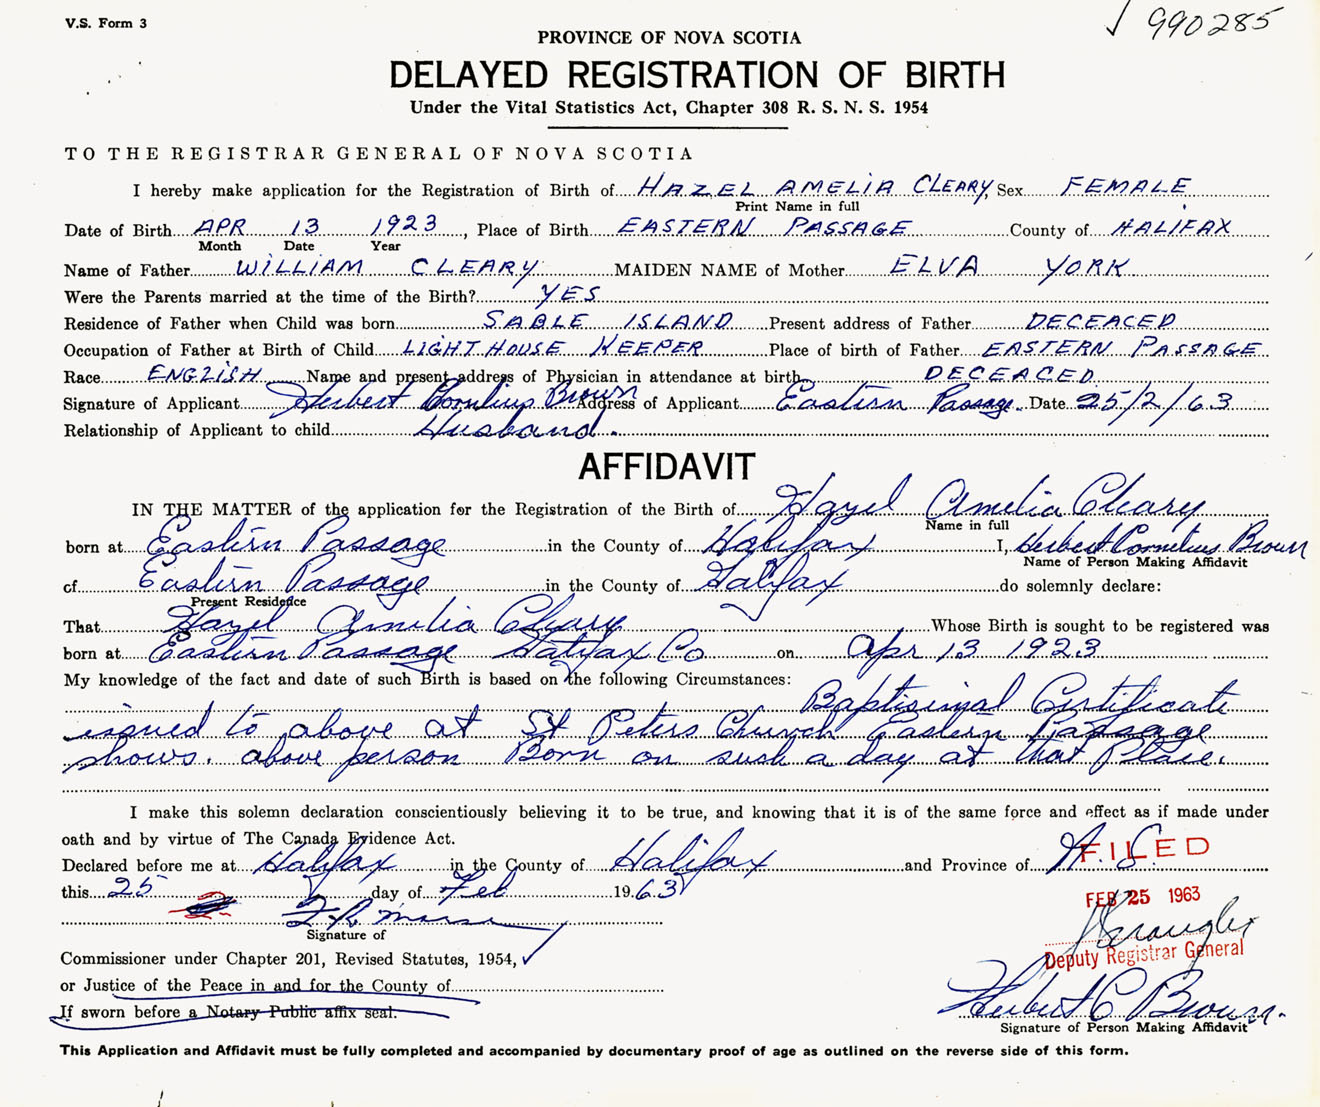 V.S. Form 3
990285
PROVINCE OF NOVA SCOTIA
DELAYED REGISTRATION OF BIRTH
Under the Vital Statistics Act, Chapter 308 R. S. N. S. 1954
TO THE REGISTRAR GENERAL OF NOVA SCOTIA
I hereby make application for the Registration of Birth of HAZEL AMELIA CLEARY, Sex FEMALE
Print Name in full
Date of Birth APR 13 1923, Place of Birth EASTERN PASSAGE County of HALIFAX
Month Date Year
Name of Father WILLIAM CLEARY MAIDEN NAME of Mother ELVA YORK
Were the Parents married at the time of the Birth? YES
Residence of Father when Child was born SABLE ISLAND Present address of Father DECEACED
Occupation of Father at Birth of Child LIGHTHOUSE KEEPER Place of birth of Father EASTERN PASSAGE
Race ENGLISH Name and present address of Physician in attendance at birth DECEACED
Signature of Applicant Herbert Cornelius Brown Address of Applicant Eastern Passage Date 25/2/63
Relationship of Applicant to child Husband.
AFFIDAVIT
IN THE MATTER of the application for the Registration of the Birth of Hazel Amelia Cleary
Name in full
born at Eastern Passage in the County of Halifax I, Herbert Cornelius Brown
Name of Person Making Affidavit
of Eastern Passage in the County of Halifax do solemnly declare:
Present Residence
That Hazel Amelia Cleary Whose Birth is sought to be registered was
born at Eastern Passage Halifax Co on Apr 13 1923
My knowledge of the fact and date of such Birth is based on the following Circumstances:
Baptisimal Certificate
issued to above at St Peters Church Eastern Passage
shows. above person Born on such a day at that Place.
I make this solemn declaration conscientiously believing it to be true, and knowing that it is of the same force and effect as if made under
oath and by virtue of The Canada Evidence Act.
Declared before me at Halifax in the County of Halifax and Province of N.S.
FILED
this 25 day of Feb 1963
FEB 25 1963
Signature of
Deputy Registrar General
Commissioner under Chapter 201, Revised Statutes, 1954,
or Justice of the Peace in and for the County of
If sworn before a Notary Public affix seal.
Herbert C Brown.
Signature of Person Making Affidavit
This Application and Affidavit must be fully completed and accompanied by documentary proof of age as outlined on the reverse side of this form.